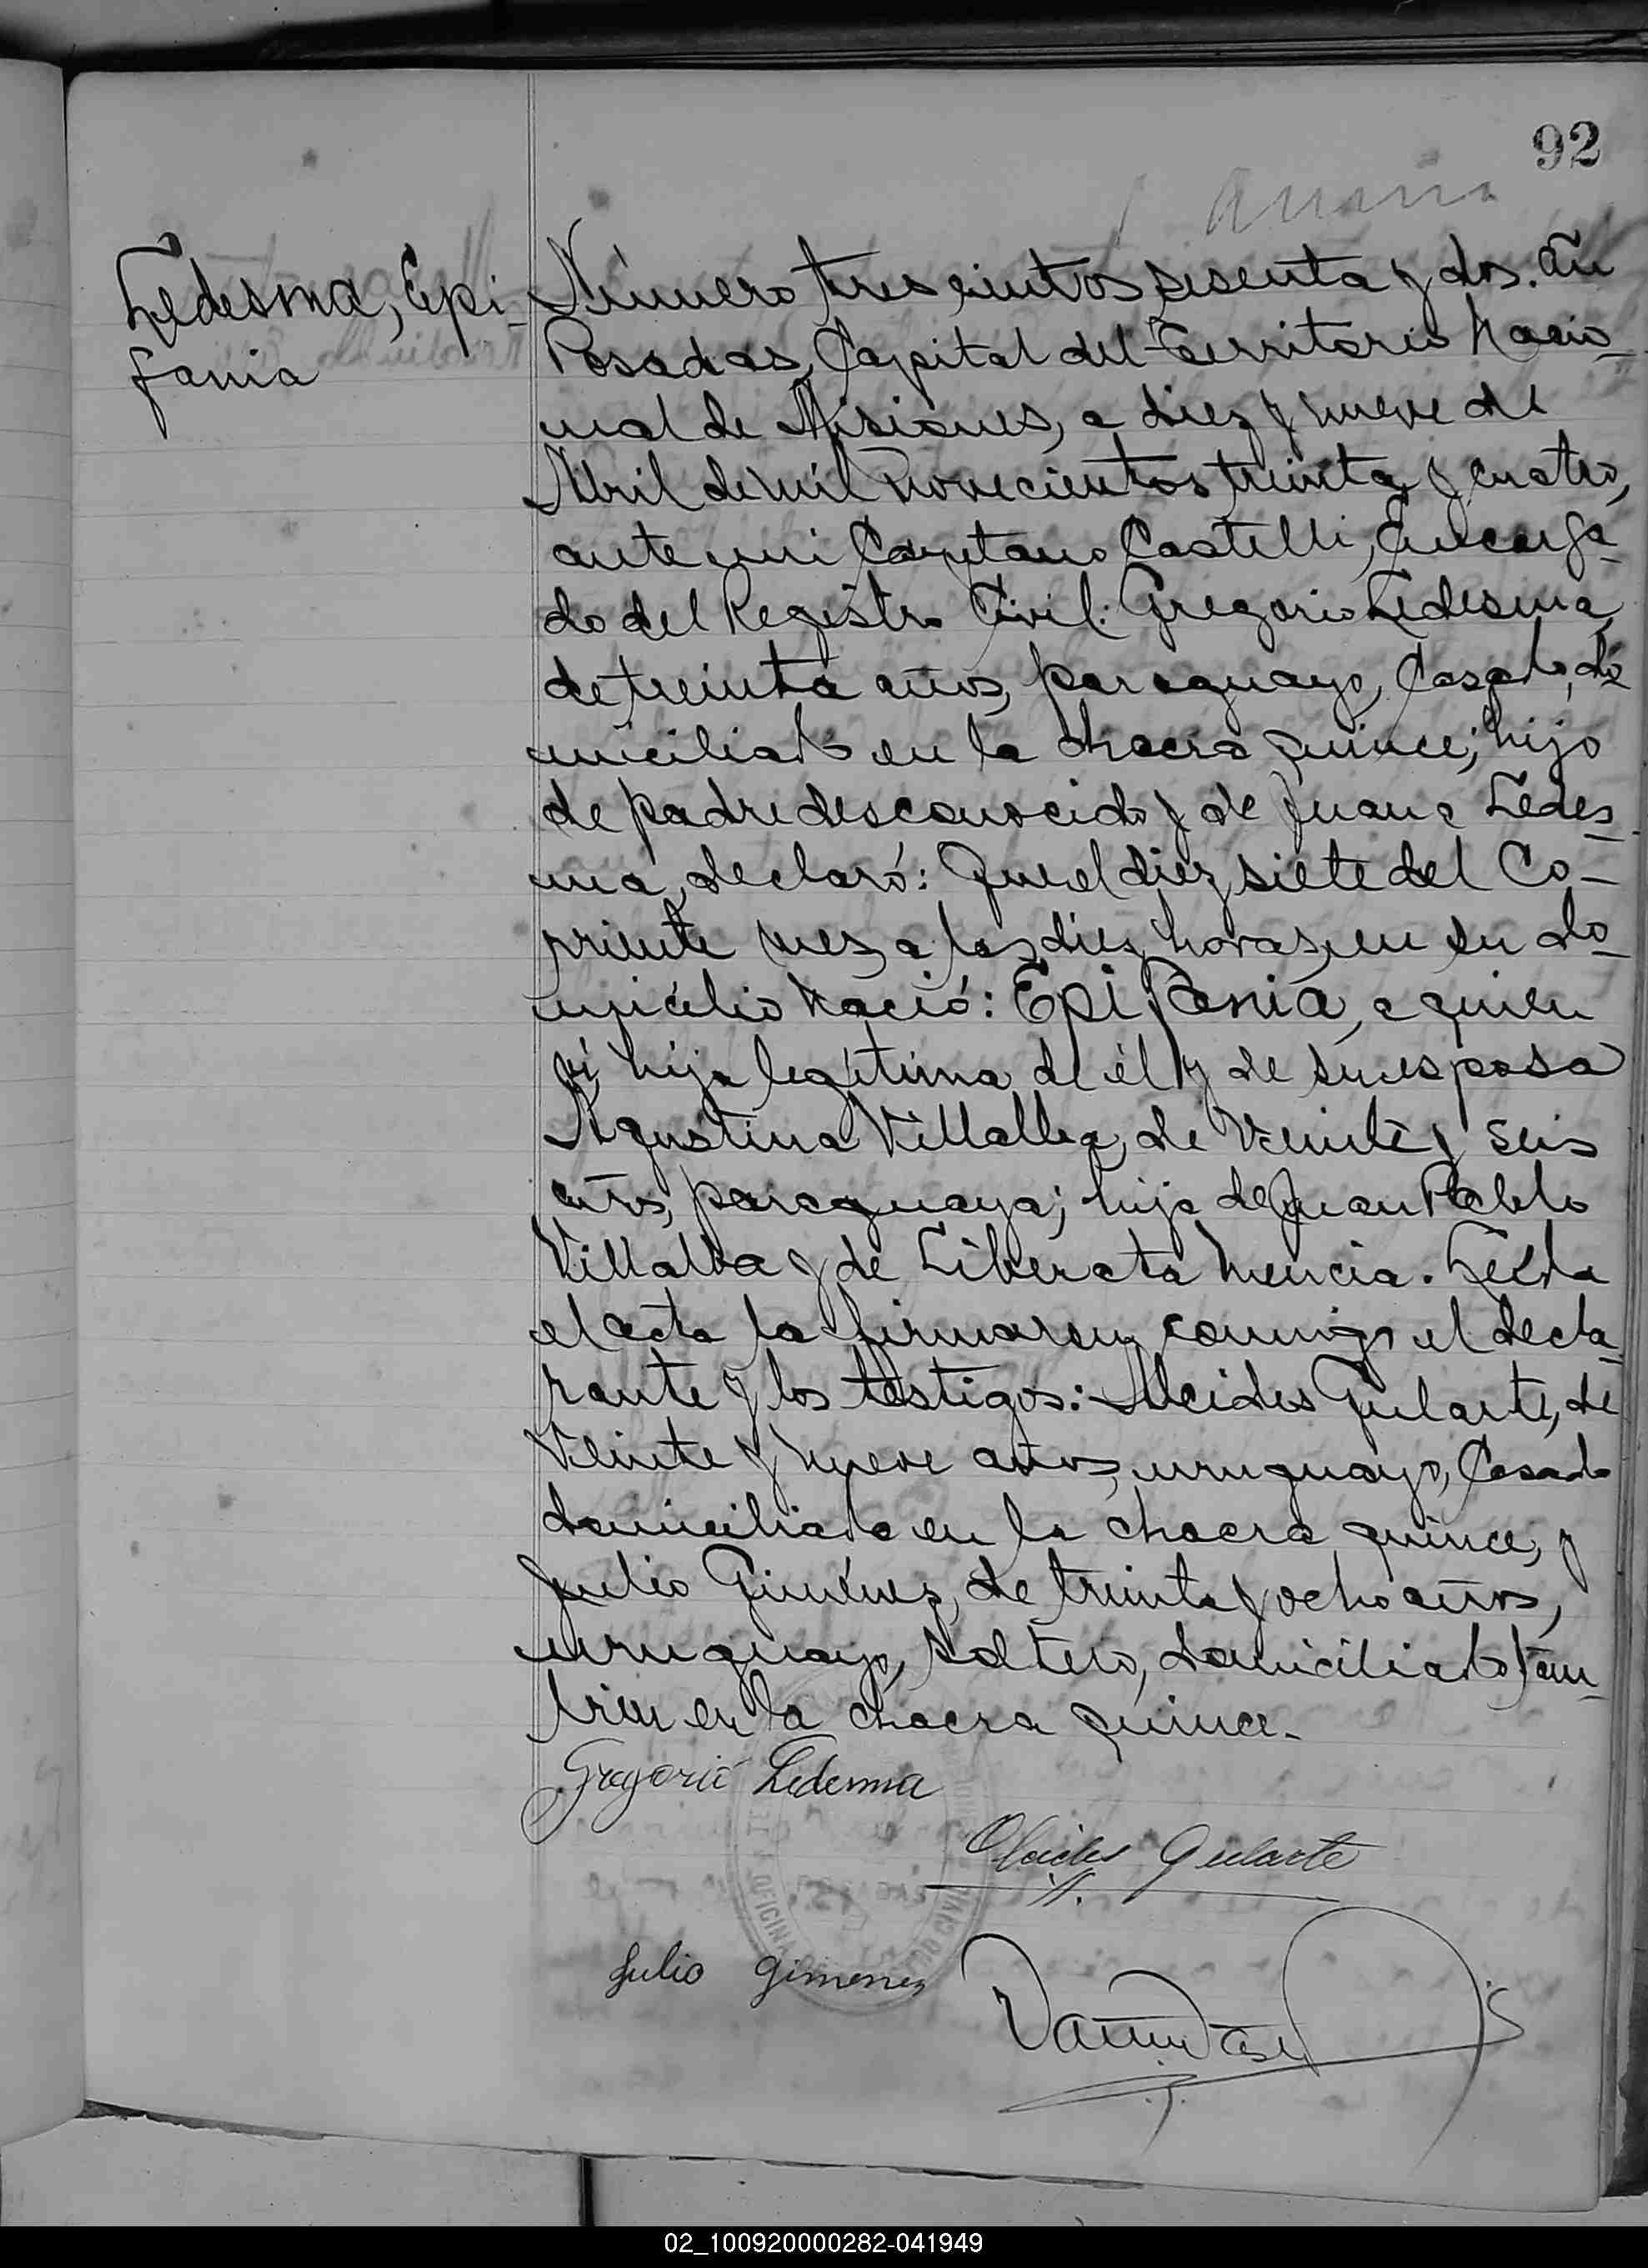 92
Ledesma, Epi-
fania
Número trescientos sesenta y dos. En
Posadas, Capital del Territorio Nacio-
nal de Misiones, a diez y nueve de
Abril de mil novecientos treinta y cuatro,
ante mi Cayetano Castelli, Encarga-
do del Registro Civil: Gregorio Ledesma,
de treinta años, paraguayo, Casado, do-
miciliado en la chacra quince; hijo
de padre desconocido y de Juana Ledes-
ma, declaró: Que el diez y siete del Co-
rriente mes, a las diez horas, en su do-
micilio Nació: Epifania, a quien
vi, hija legítima de él y de su esposa
Agustina Villalba, de Veinte y seis
años, paraguaya; hija de Juan Pablo
Villalba y de Liberata Mencia. Leída
el acta la firmaron conmigo el decla-
rante y los testigos: Alcides Gularte, de
Veinte y nueve años, uruguayo, Casado
domiciliado en la chacra quince, y
Julio Giménez, de treinta y ocho años,
uruguayo, soltero, domiciliado tam-
bien en la chacra quince.-
Gregorio Ledesma
Alcides Gularte
Julio Gimenez
OFICINA CIVIL
02_100920000282-041949